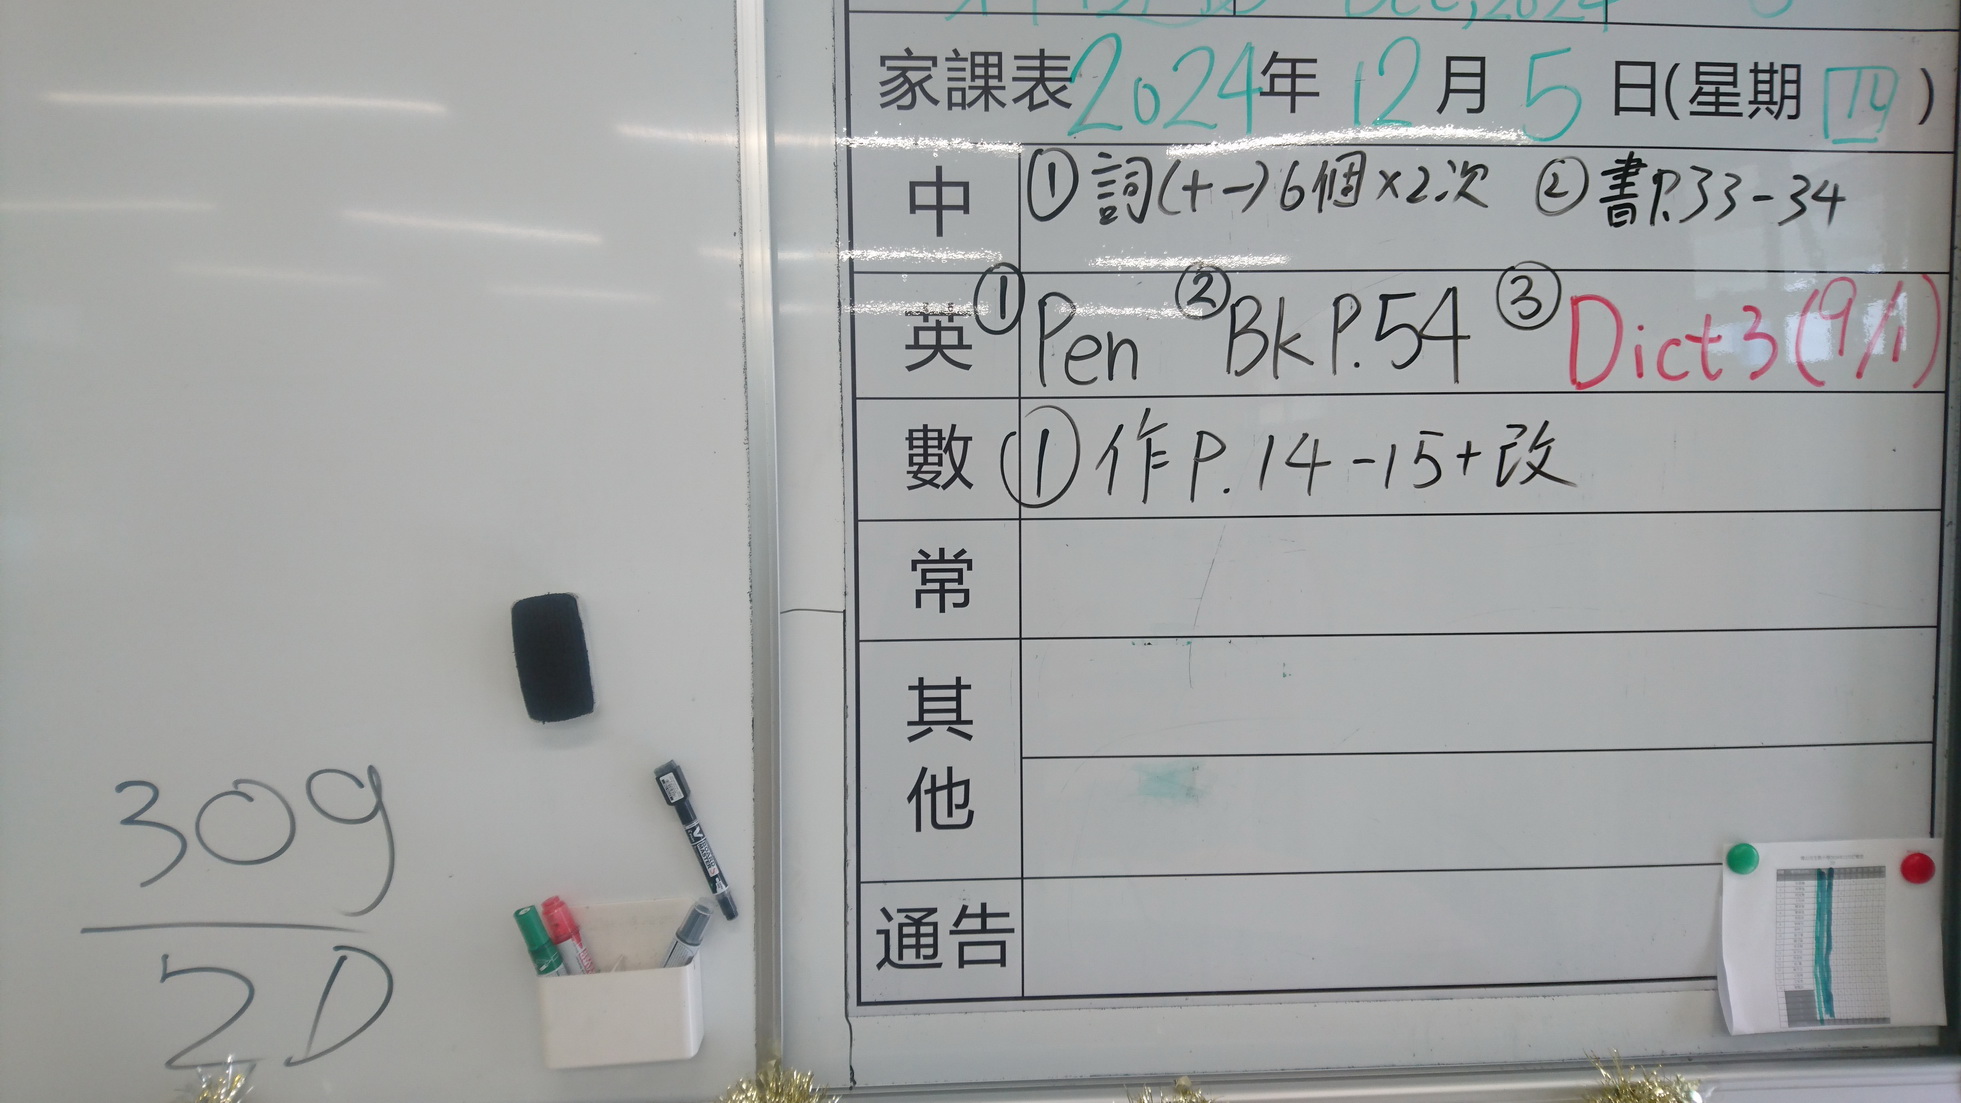 Dec, 2024
家課表 2024年 12月 5日(星期四)
中 ①詞(十一)6個×2次 ②書P.33-34
英 ①Pen ②Bk P.54 ③Dict 3 (9/1)
數 ①作P.14-15+改
常
其他
通告
309
2D